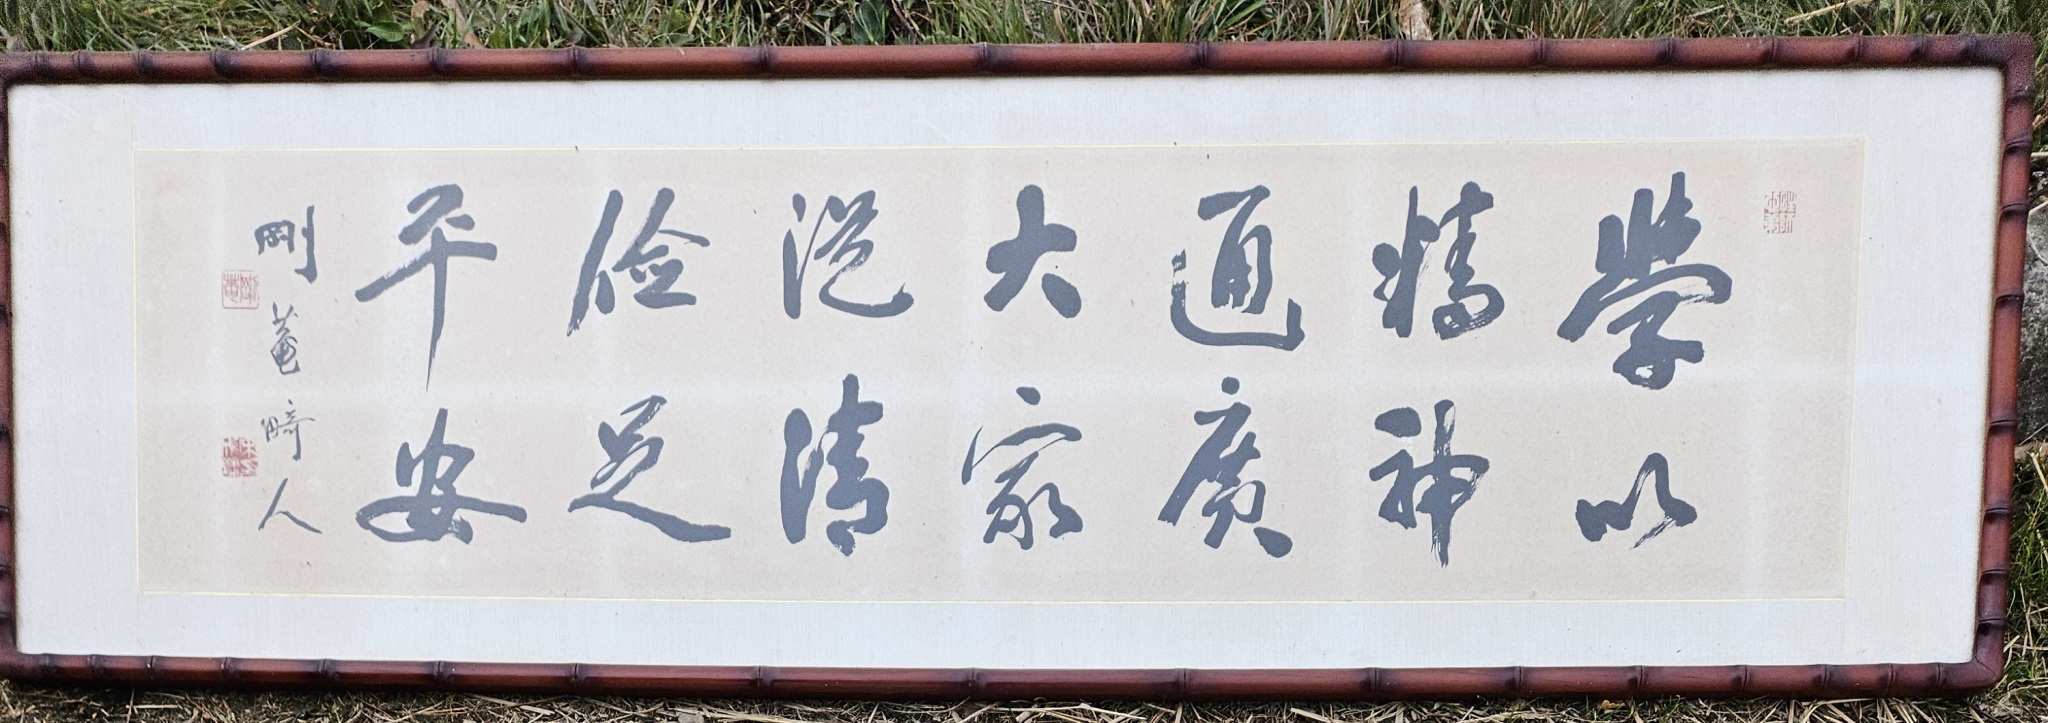 學以
精神
通廣
大家
從清
儉足
平安
剛菴畸人